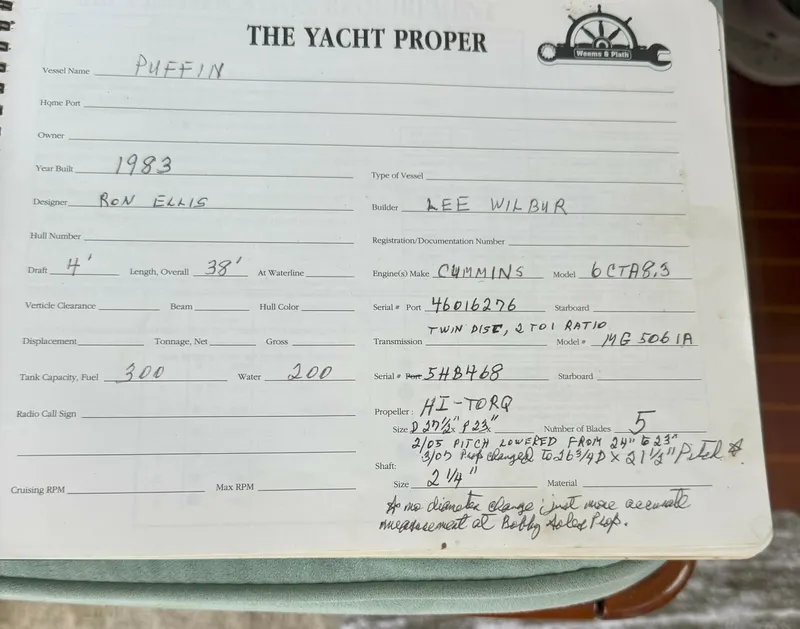 THE YACHT PROPER
Weems & Plath
Vessel Name PUFFIN
Home Port
Owner
Year Built 1983
Type of Vessel
Designer RON ELLIS
Builder LEE WILBUR
Hull Number
Registration/Documentation Number
Draft 4' Length, Overall 38' At Waterline
Engine(s) Make CUMMINS Model 6CTA8.3
Verticle Clearance Beam Hull Color
Serial # Port 46016276 Starboard
TWIN DISC, 2 TO 1 RATIO
Displacement Tonnage, Net Gross
Transmission Model # MG 5061A
Tank Capacity, Fuel 300 Water 200
Serial # Port 5HB468 Starboard
Radio Call Sign
Propeller: HI-TORQ
Size D 27½" P 23" Number of Blades 5
2/05 PITCH LOWERED FROM 24" TO 23"
3/07 Prop changed to 26 3/4 D x 21 1/2" Pitch *
Shaft:
Size 2 1/4" Material
Cruising RPM Max RPM
* no diameter change; just more accurate
measurement at Bobby Prop.